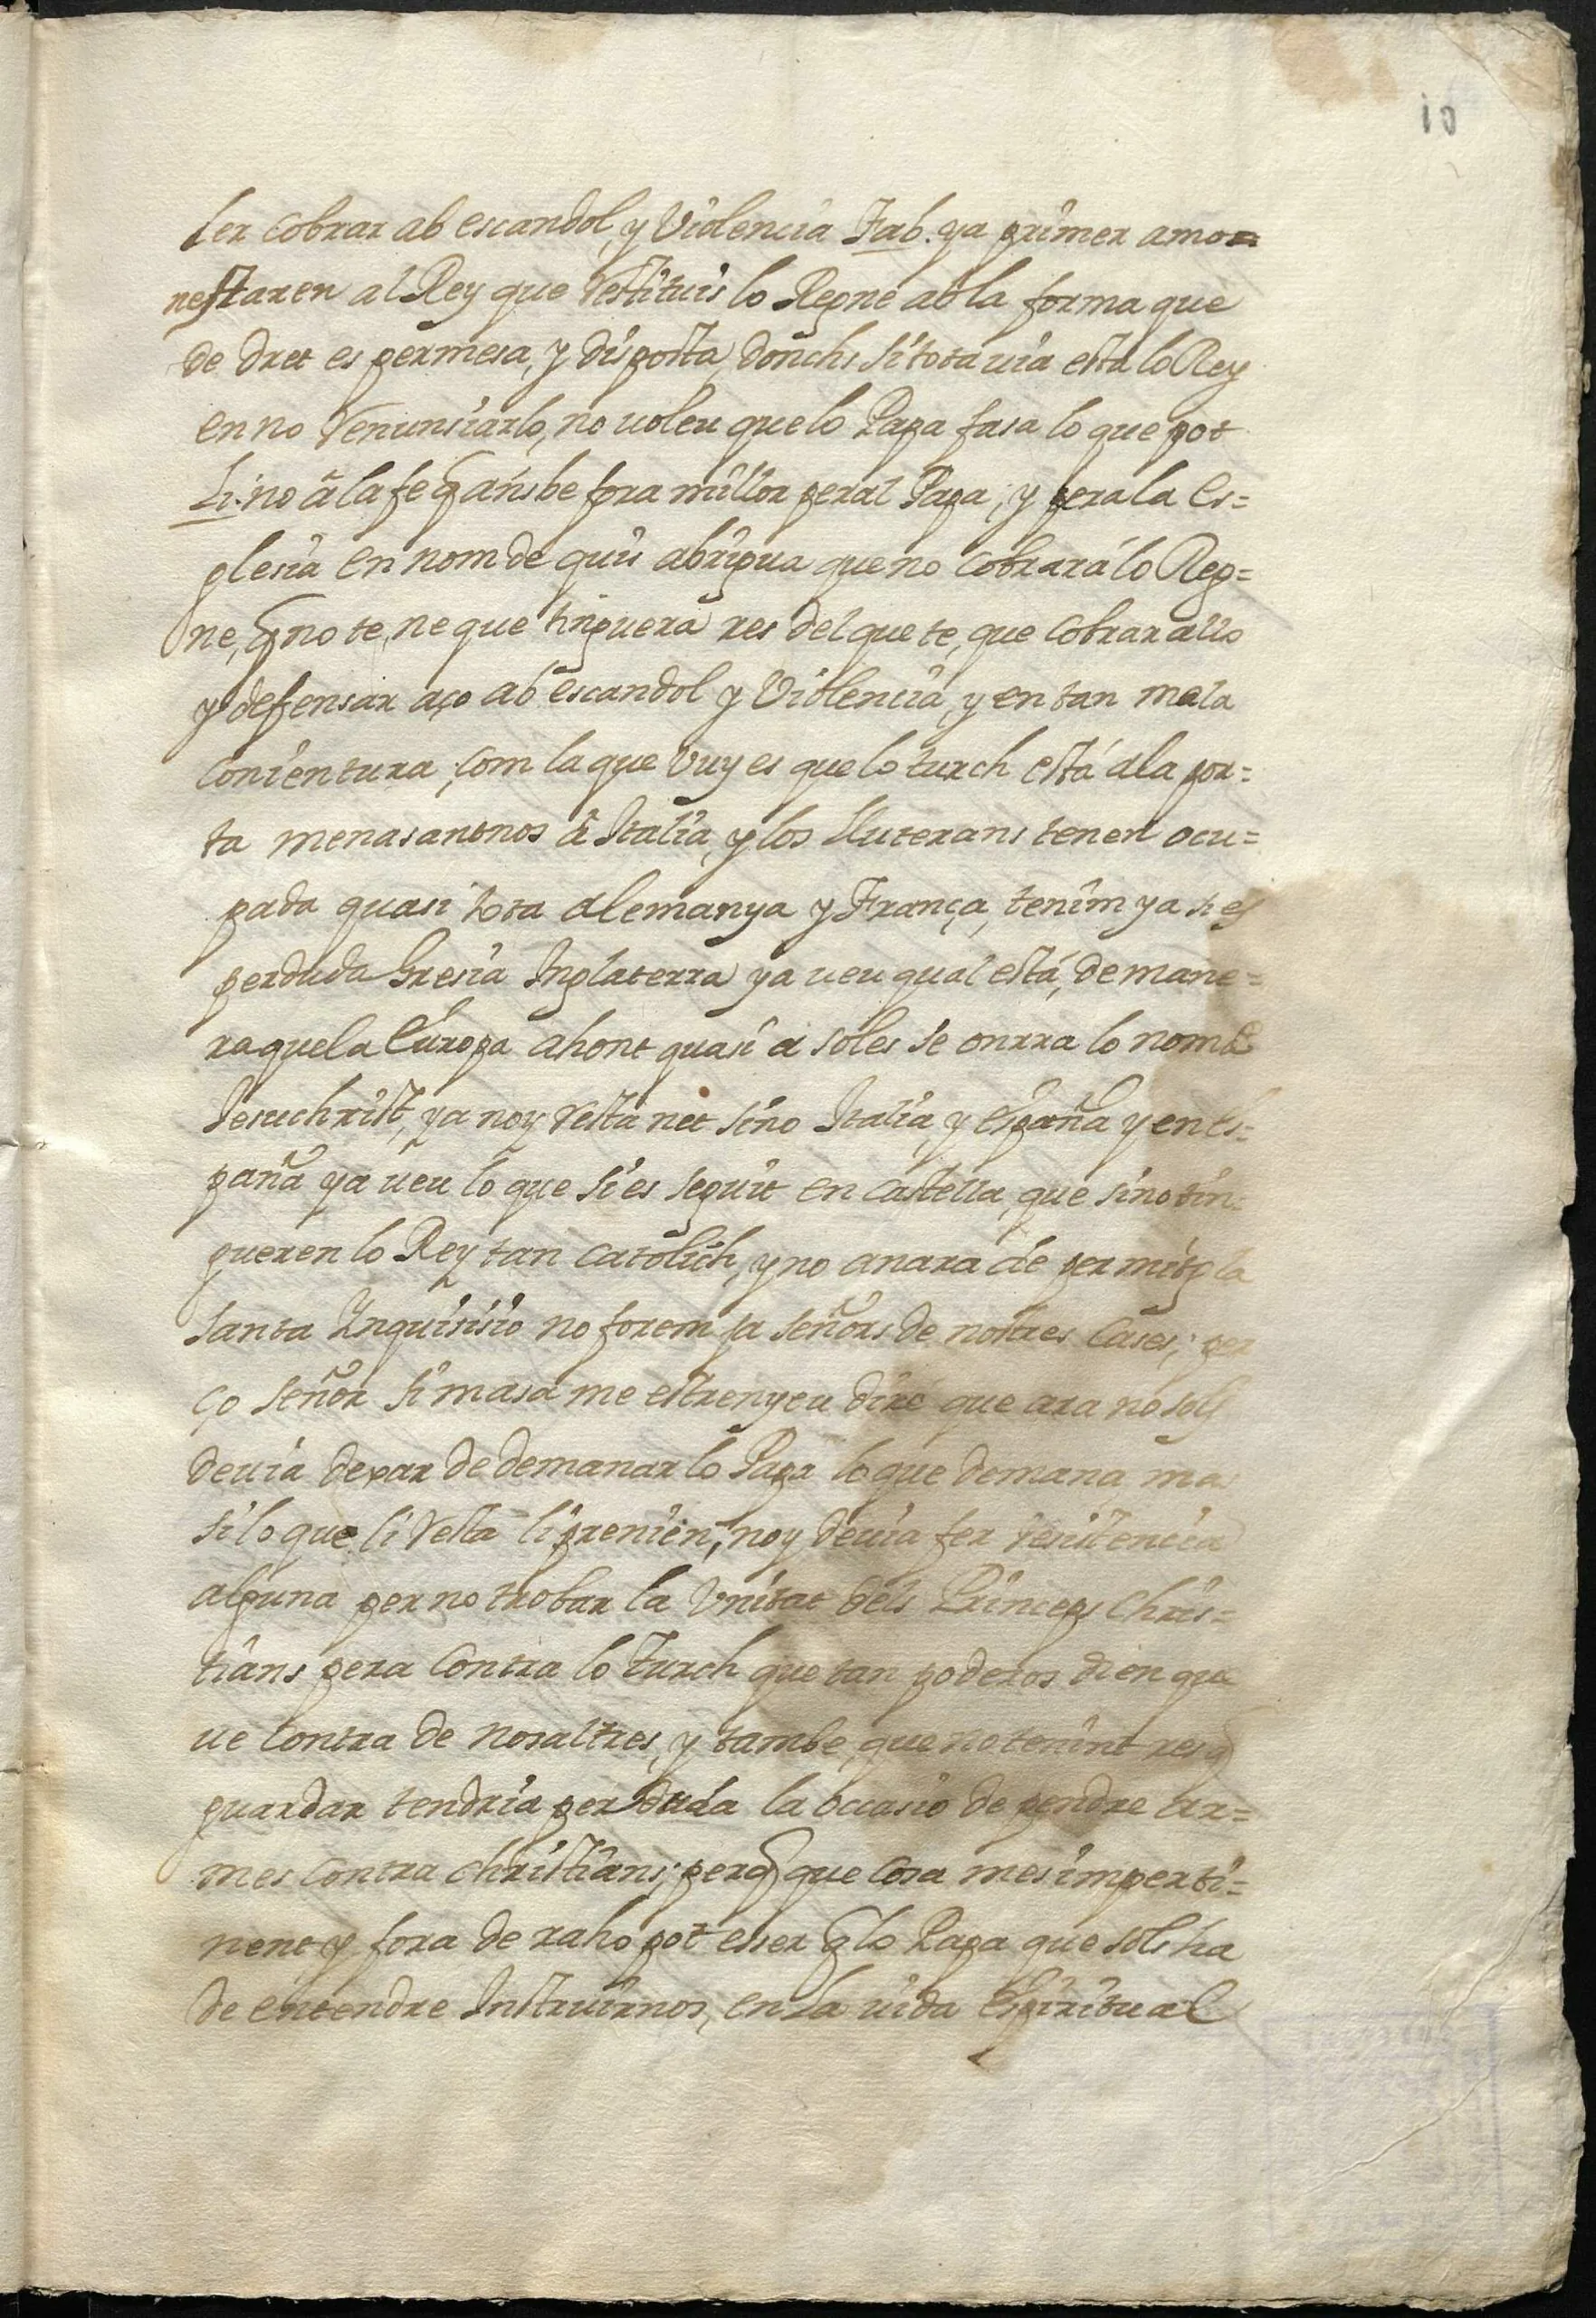 10
ler cobrar ab escandol, y Violencia Fab. ya primer amo=
nestaren al Rey que restituis lo Regne ab la forma que
de dret es permesa, y disposta, donchs si tota uia està lo Rey
en no renunsiarlo, no uoleu que lo Papa fasa lo que pot
Li. no à la fe q̃ ans be fora millor peral Papa, y pera la Es=
glesia en nom de quis abrigua que no cobrarà lo Reg=
ne, q̃ no te, ne que tinguera res del que te, que cobrar allo
y defensar aço ab escandol y Violencia, y en tan mala
conientura, com la que vuy es que lo turch està á la por=
ta menasantnos à Italia, y los Lluterans tenen ocu=
pada quasi tota Alemanya y França, tenim ya si es
perduda Gresia Inglaterra ya ueu qual està, de mane=
ra que la Europa ahont quasi a soles se onrra lo nom de
Jesuchrist, ya noy resta net sino Italia, y España y en Es=
paña ya ueu lo que si es seguit en Castella, que si no tin=
gueren lo Rey tan Catolich, y no anara de per mitg la
Santa Inquisisio no forem ja señors de nostres Cases; per
ço señor si masa me estrenyeu diré que ara no sols
deuia dexar de demanar lo Papa lo que demana mes
si lo que li resta li prenien, noy deuia fer resistencia
alguna per no trobar la Vnitat dels Princeps Chris=
tians pera contra lo Turch que tan poderos dien que
ue contra de nosaltres, y tambe que no tenint res q̃
guardar tendria perduda la occasio de pendre ar=
mes contra christians; perq̃ que cosa mes imperti=
nent y fora de raho pot esser q̃ lo Papa que sols ha
de entendre Instruirnos, en la uida Espiritual